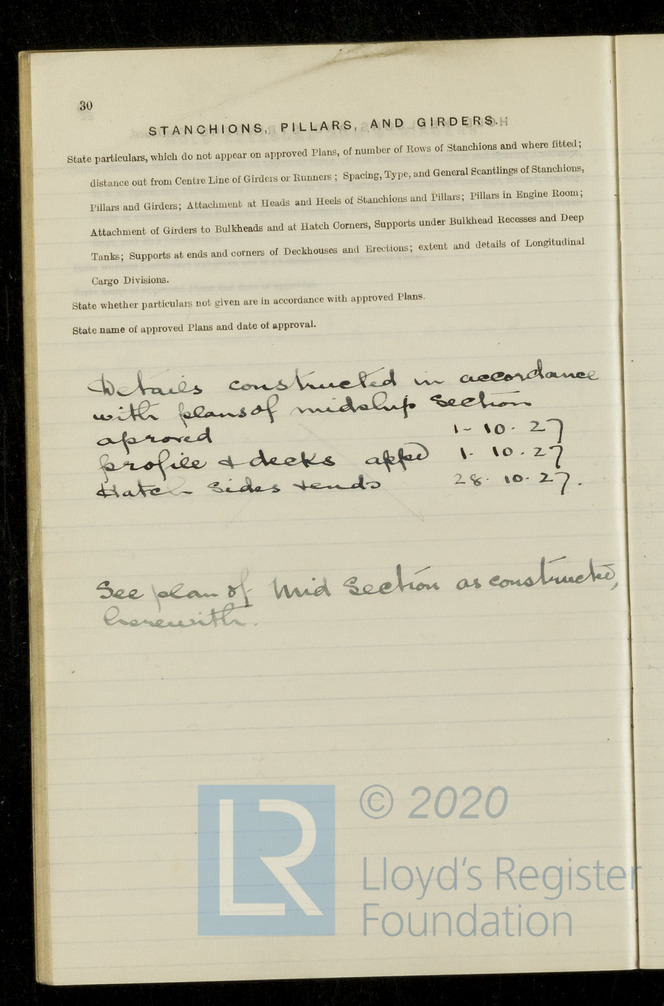 30
STANCHIONS, PILLARS, AND GIRDERS.
State particulars, which do not appear on approved Plans, of number of Rows of Stanchions and where fitted;
distance out from Centre Line of Girders or Runners; Spacing, Type, and General Scantlings of Stanchions,
Pillars and Girders; Attachment at Heads and Heels of Stanchions and Pillars; Pillars in Engine Room;
Attachment of Girders to Bulkheads and at Hatch Corners, Supports under Bulkhead Recesses and Deep
Tanks; Supports at ends and corners of Deckhouses and Erections; extent and details of Longitudinal
Cargo Divisions.
State whether particulars not given are in accordance with approved Plans.
State name of approved Plans and date of approval.
Details constructed in accordance
with plans of midship Section
aproved 1-10.27
profile & decks appd 1.10.27
Hatch Sides & ends 28.10.27.
See plan of Mid Section as constructed,
herewith.
LR
© 2020
Lloyd's Register
Foundation